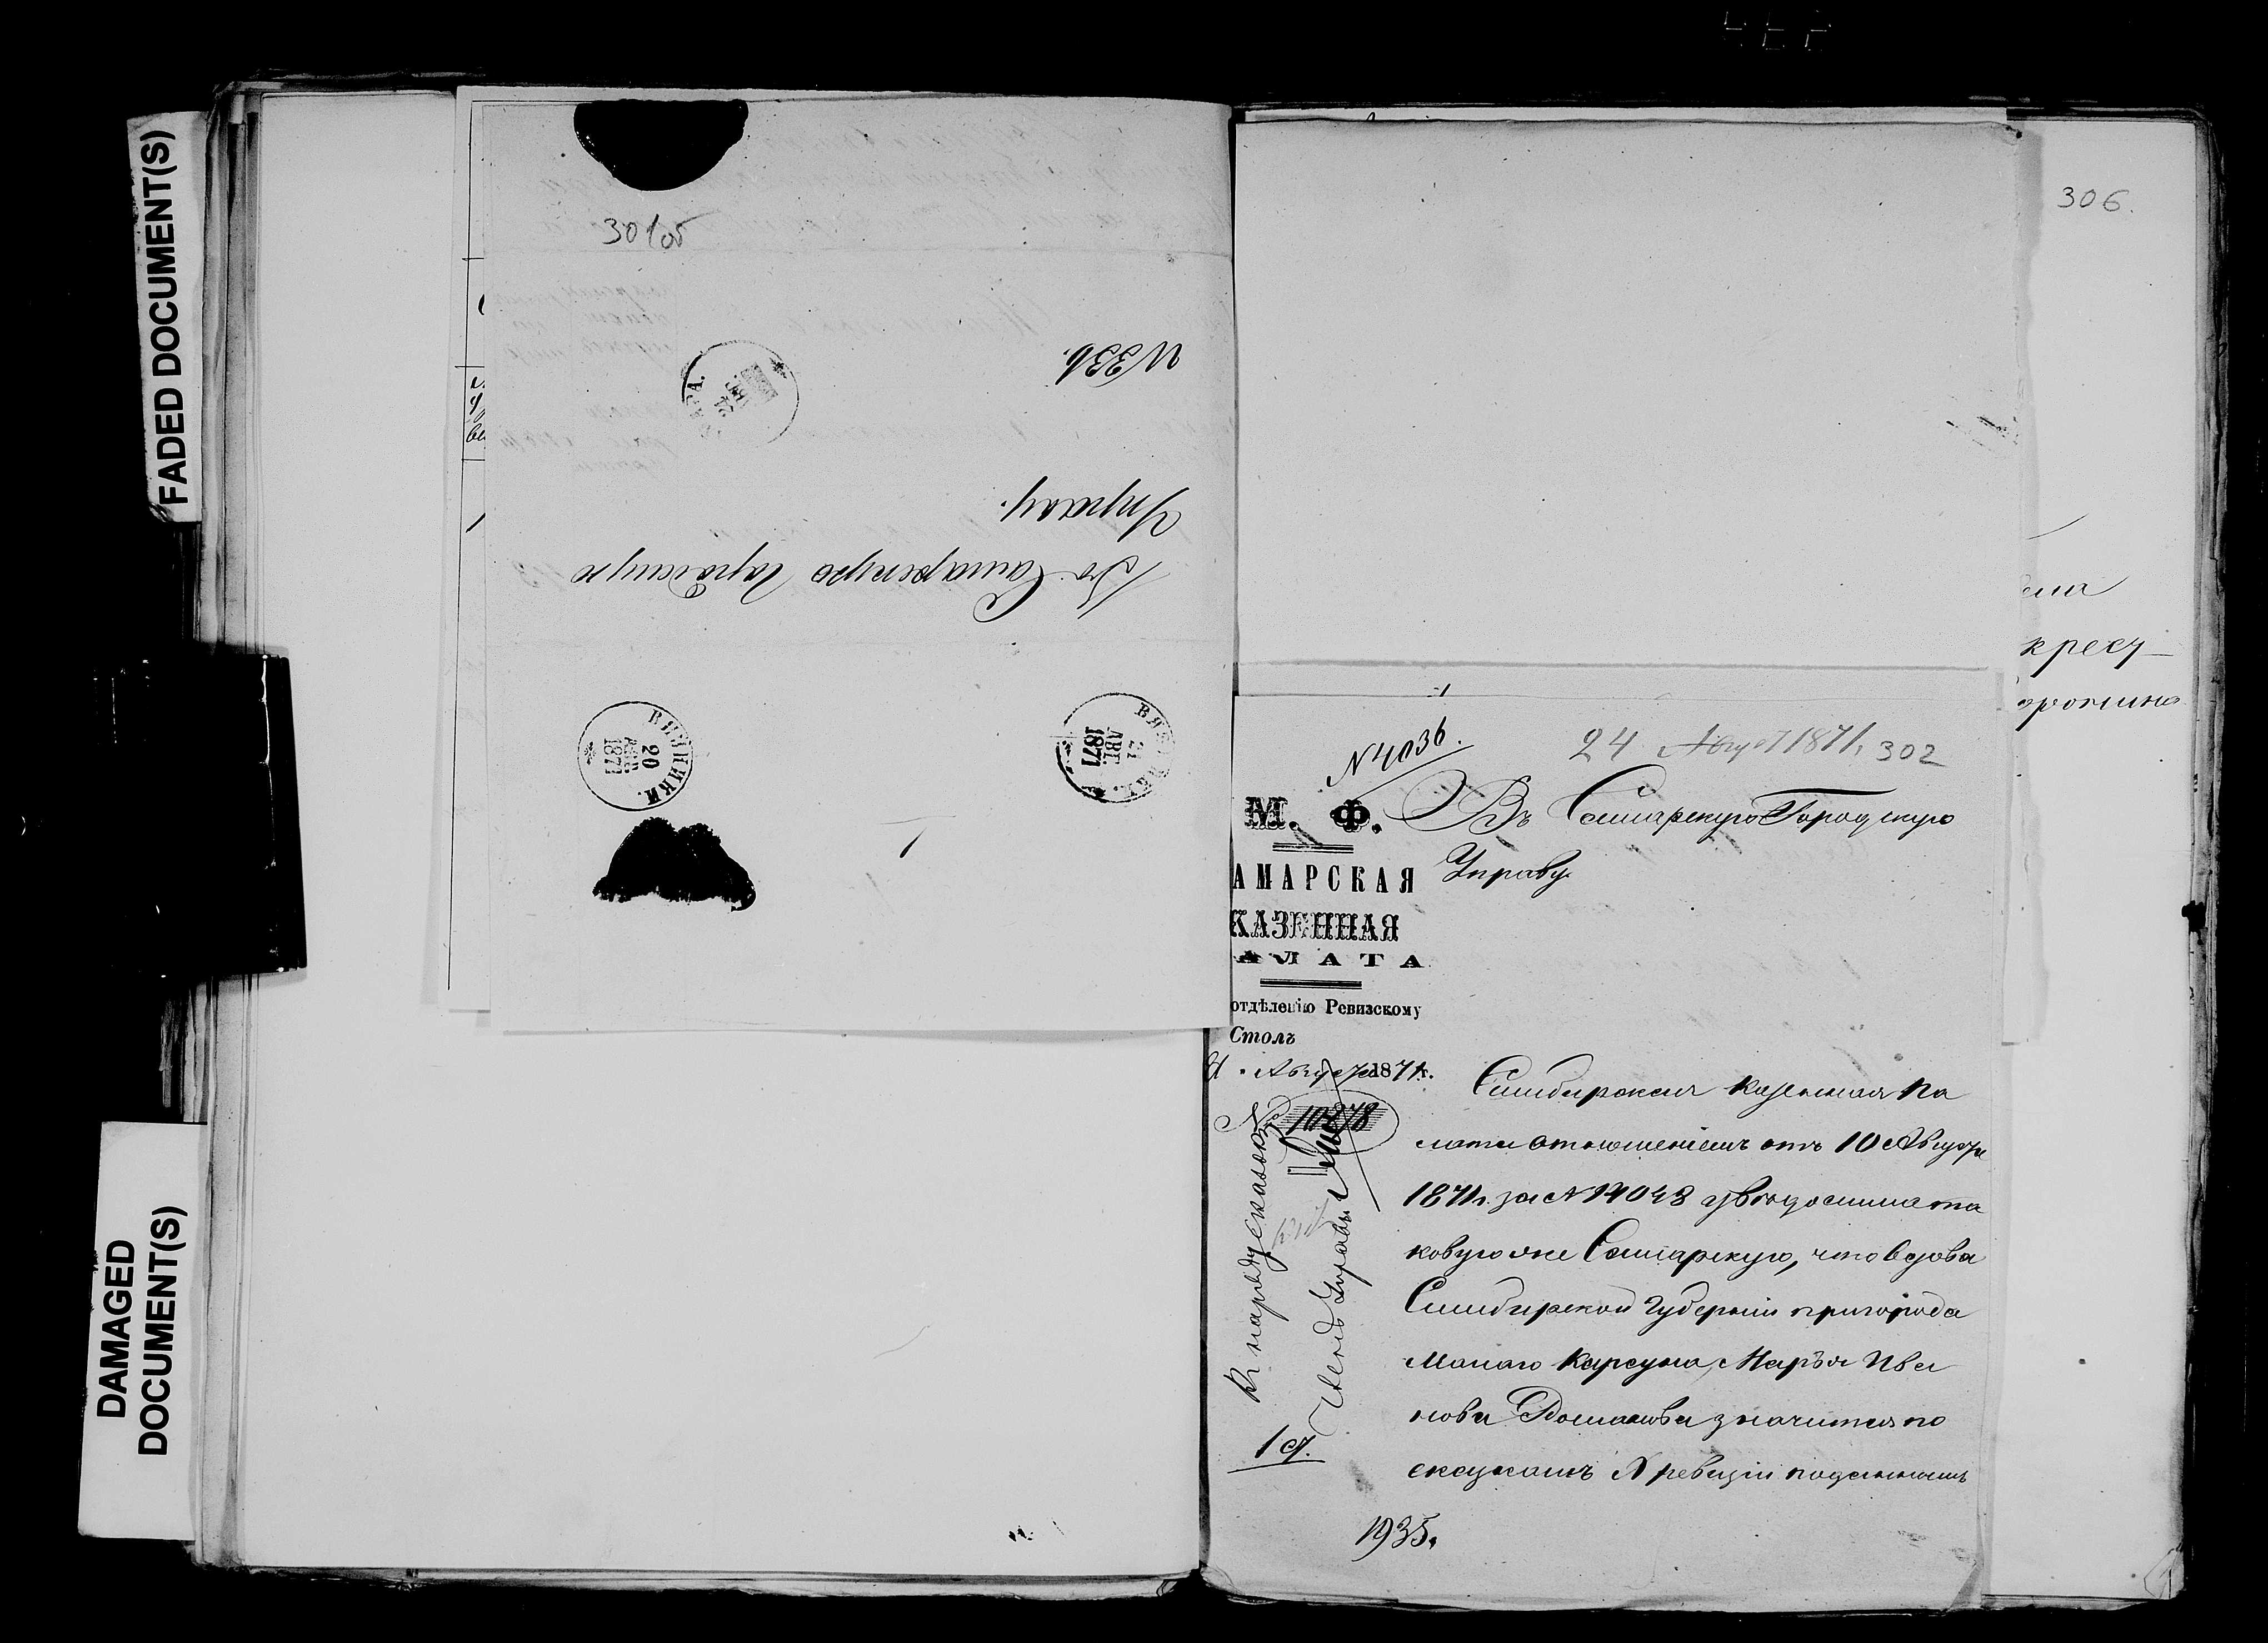 FADED DOCUMENT(S)
DAMAGED
DOCUMENT(S)
301об
N 336.
Въ Самарскую Городскую
Управу.
ВЯЗНИКИ.
20
1871
21
АВГ.
1871
306.
кресу-
N 4036.
24 Август 1871, 302
М. Ф.
АМАРСКАЯ
КАЗЕННАЯ
АЛАТА
отдѣленію Ревизскому
Столъ
Августа 1871 г.
N 10278
Въ Самарскую Городскую
Управу
Симбирская Казенная Па
лата отношеніемъ отъ 10 Августа
1871 г. за N 14043 увѣдомила та
ковую же Самарскую, что вдова
Симбирской Губерніи пригорода
Малаго Карсуна, Марья Ива
нова Романова значится по
сказкамъ X ревизіи подъ
Къ наряду
Членъ Управы
1 ст.
1935.